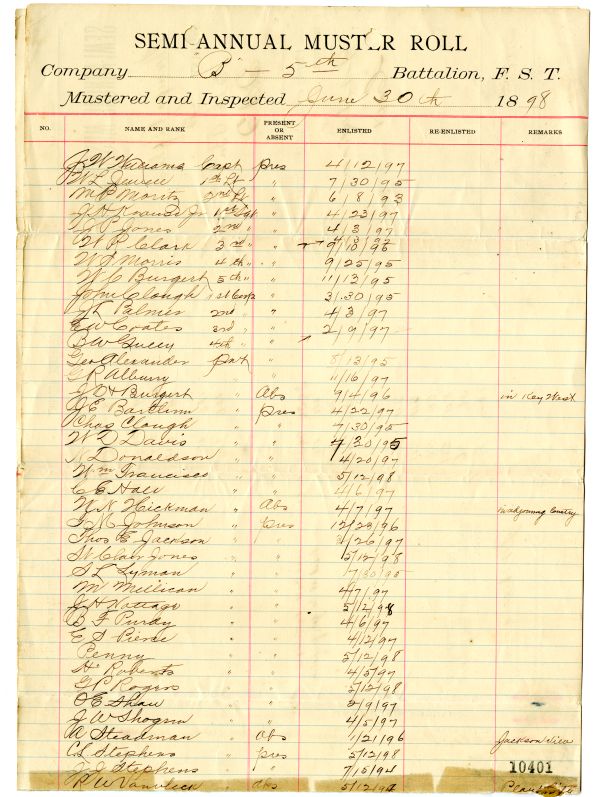 SEMI-ANNUAL MUSTER ROLL
Company "B" - 5th Battalion, F. S. T.
Mustered and Inspected June 30th 1898
NO. NAME AND RANK PRESENT OR ABSENT ENLISTED RE-ENLISTED REMARKS
J W Williams Capt pres 4/12/97
W L 1st Lt " 7/30/95
M P Moritz 2nd Lt " 6/8/93
1st Sgt " 4/23/97
Jones 2nd " " 4/3/97
W P Clark 3rd " "
W S Morris 4th " " 9/25/95
W C Burgert 5th " " 11/13/95
John Clough 1st Corp " 3/30/95
Palmer 2nd " " 4/3/97
E W Coates 3rd " " 2/9/97
B W 4th " "
Geo Alexander Pvt " 8/13/95
Albury " " 11/16/97
Burgert " Abs 9/4/96 in Key West
J E Bartlum " pres 4/22/97
Chas Clough " " 7/30/95
W D Davis " " 4/30/95
Donaldson " " 4/20/97
Wm Francisco " " 5/12/98
C E Hall " " 4/6/97
W N Hickman " Abs 4/7/97
Johnson " pres 12/23/96
Thos E. Jackson " " 2/26/97
St Clair Jones " " 5/12/98
S L Lyman " " 7/30/95
M Millican " " 4/7/97
J H " " 5/12/98
B F Purdy " " 4/6/97
E S Pierce " " 4/12/97
Penny " " 5/12/98
H Roberts " " 4/5/97
G P Rogers " " 5/12/98
O E Shaw " " 2/9/97
J W Shogren " " 4/5/97
A Steadman " abs 1/21/96 Jacksonville
C L Stephens " pres 5/12/98
J Stephens " " 7/15/94
10401
" abs